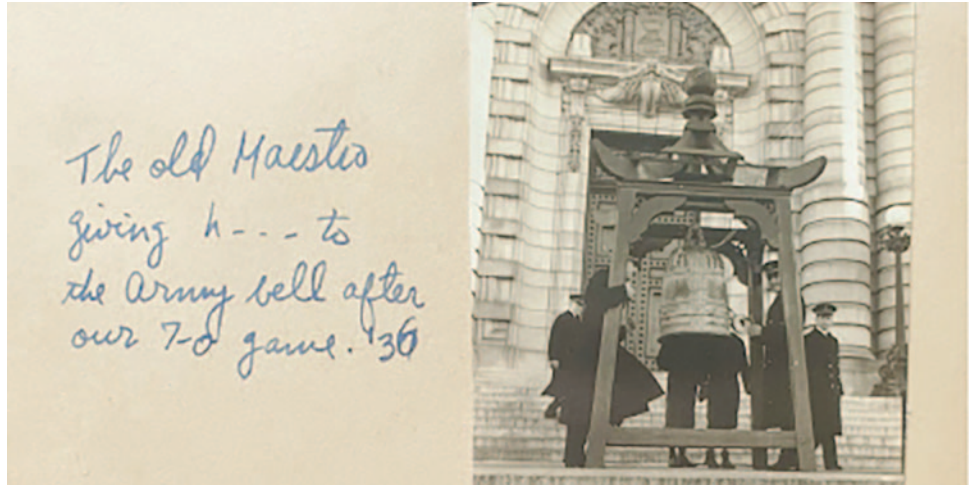 The old Maestro
giving h--- to
the Army bell after
our 7-0 game. '36